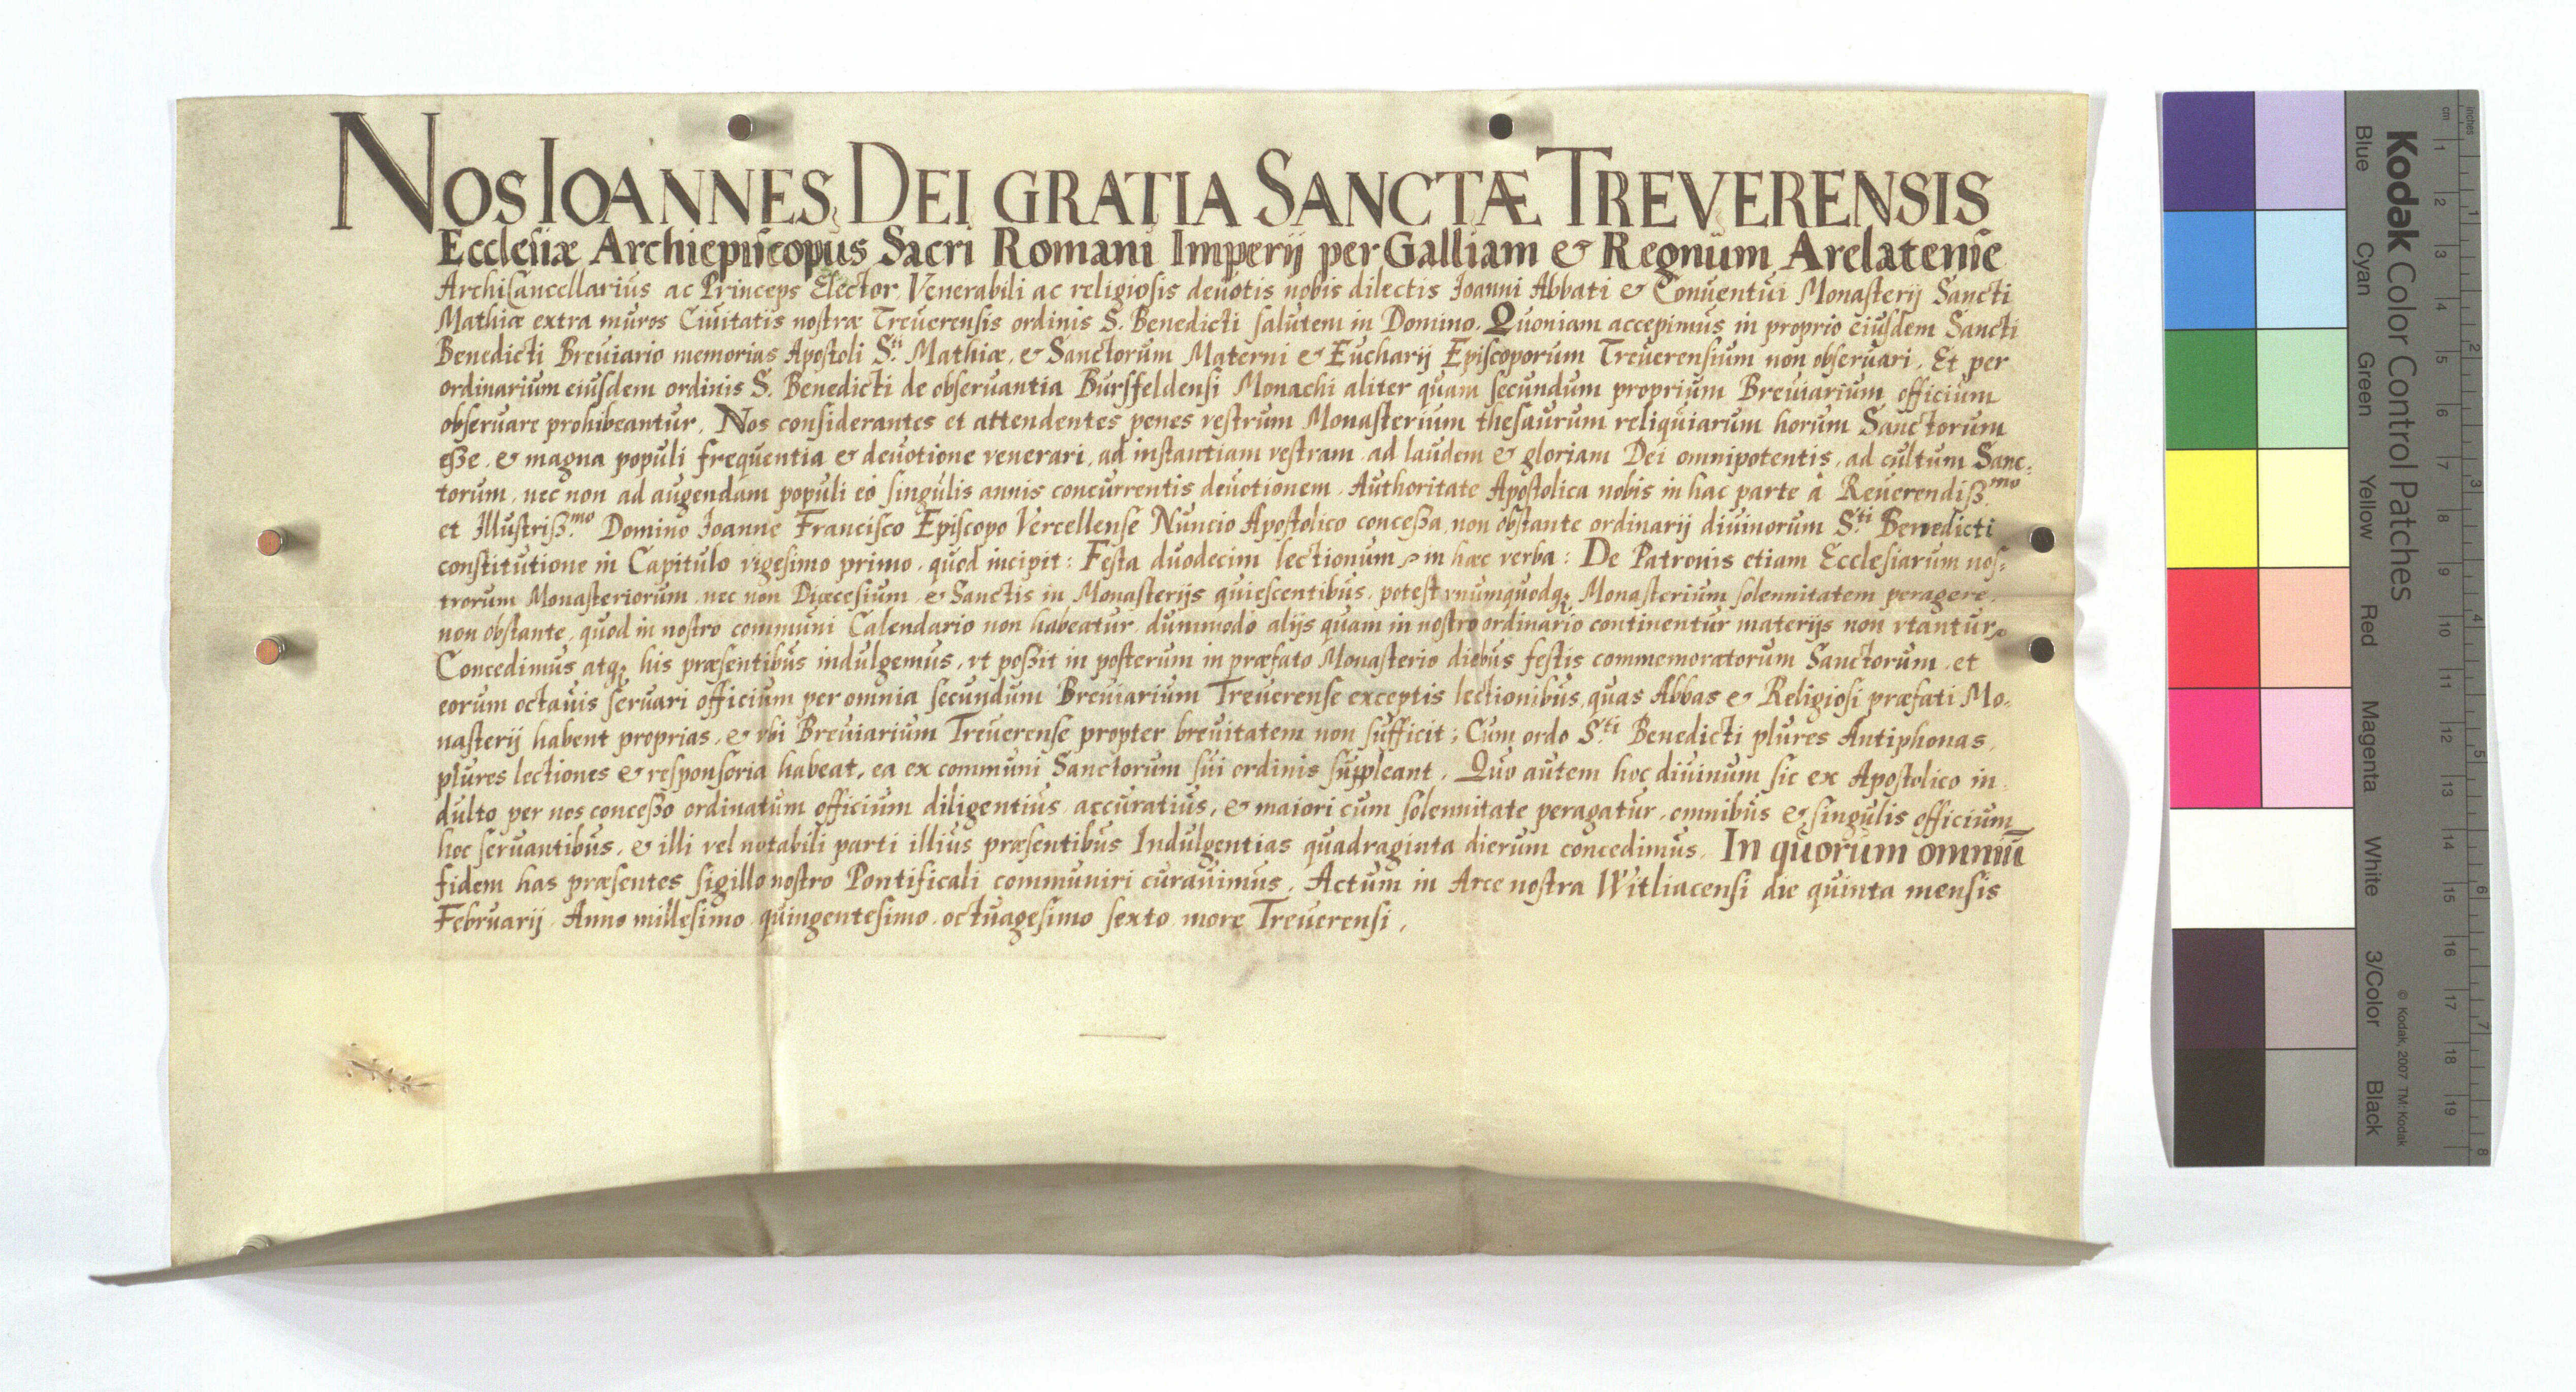 NOS IOANNES DEI GRATIA SANCTÆ TREVERENSIS
Eccleſiæ Archiepiſcopus Sacri Romani Imperij per Galliam & Regnum Arelatenſe
Archicancellarius ac Princeps Elector, Venerabili ac religioſis deuotis nobis dilectis Ioanni Abbati & Conuentui Monaſterij Sancti
Mathiæ extra muros Ciuitatis noſtræ Treuerenſis ordinis S. Benedicti ſalutem in Domino. Quoniam accepimus in proprio eiuſdem Sancti
Benedicti Breuiario memorias Apoſtoli S.ti Mathiæ, & Sanctorum Materni & Eucharij Epiſcoporum Treuerenſium non obſeruari, Et per
ordinarium eiuſdem ordinis S. Benedicti de obſeruantia Burſfeldenſi Monachi aliter quam ſecundum proprium Breuiarium officium
obſeruare prohibeantur, Nos conſiderantes et attendentes penes veſtrum Monaſterium theſaurum reliquiarum horum Sanctorum
eße, & magna populi frequentia & deuotione venerari, ad inſtantiam veſtram, ad laudem & gloriam Dei omnipotentis, ad cultum Sanc:
torum, nec non ad augendam populi eò ſingulis annis concurrentis deuotionem, Authoritate Apoſtolica nobis in hac parte à Reuerendiß.mo
et Illuſtriß.mo Domino Ioanne Franciſco Epiſcopo Vercellenſe Nuncio Apoſtolico conceßa, non obſtante ordinarij diuinorum S.ti Benedicti
conſtitutione in Capitulo vigeſimo primo, quod incipit: Feſta duodecim lectionum, in hæc verba: De Patronis etiam Eccleſiarum noſ:
trorum Monaſteriorum, nec non Diœceſium, & Sanctis in Monaſterijs quieſcentibus, poteſt vnumquodq; Monaſterium ſolennitatem peragere,
non obſtante, quod in noſtro communi Calendario non habeatur, dummodo alijs quam in noſtro ordinario continentur materijs non vtantur,
Concedimus atq; his præſentibus indulgemus, vt poßit in poſterum in præfato Monaſterio diebus feſtis commemoratorum Sanctorum, et
eorum octauis ſeruari officium per omnia ſecundum Breuiarium Treuerenſe exceptis lectionibus, quas Abbas & Religioſi præfati Mo:
naſterij habent proprias, & vbi Breuiarium Treuerenſe propter breuitatem non ſufficit; Cum ordo S.ti Benedicti plures Antiphonas,
plures lectiones & reſponſoria habeat, ea ex communi Sanctorum ſui ordinis ſuppleant. Quo autem hoc diuinum ſic ex Apoſtolico in
dulto per nos conceßo ordinatum officium diligentius, accuratius, & maiori cum ſolennitate peragatur, omnibus & ſingulis officium
hoc ſeruantibus, & illi vel notabili parti illius præſentibus Indulgentias quadraginta dierum concedimus. In quorum omniū
fidem has præſentes ſigillo noſtro Pontificali communiri curauimus, Actum in Arce noſtra Witliacenſi die quinta mensis
Februarij Anno milleſimo quingenteſimo octuageſimo ſexto more Treuerenſi.
Kodak Color Control Patches
Blue Cyan Green Yellow Red Magenta White 3/Color Black
© Kodak, 2007 TM: Kodak
cm 1 2 3 4 5 6 7 8 9 10 11 12 13 14 15 16 17 18 19
inches 1 2 3 4 5 6 7 8